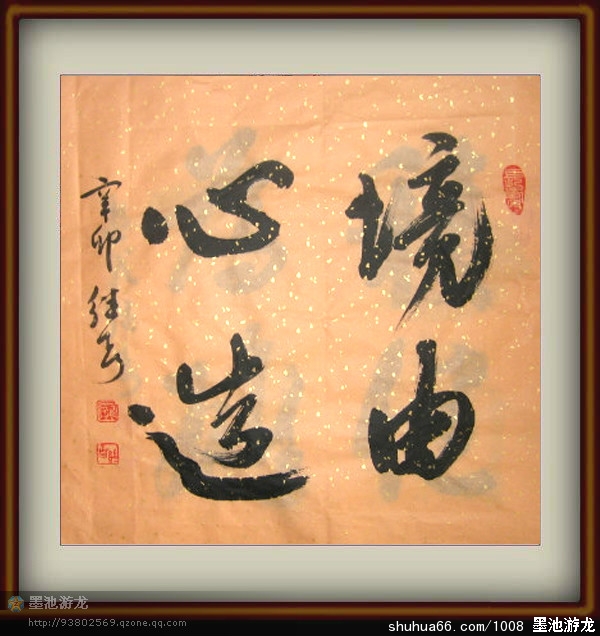 境由
心造
辛卯
墨池游龙
http://93802569.qzone.qq.com
shuhua66.com/1008 墨池游龙